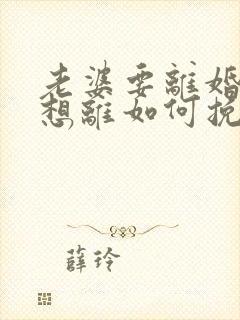 老婆要離婚
想離如何挽
薛玲